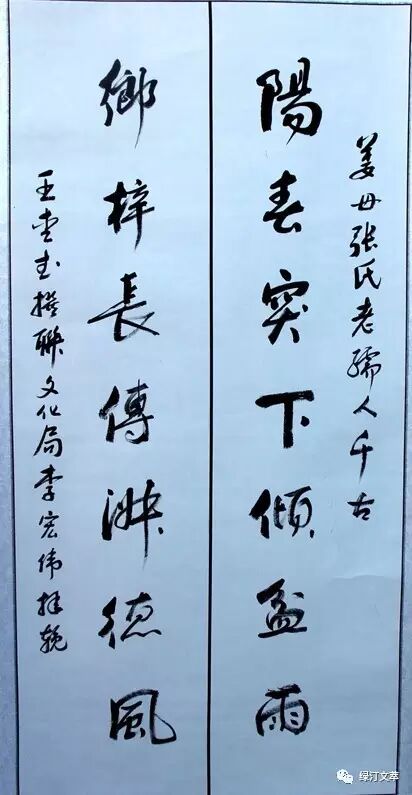 姜母張氏老孺人千古
陽春突下傾盆雨
鄉梓長傳淑德風
王生武撰聯文化局李宏偉拜挽
绿汀文萃